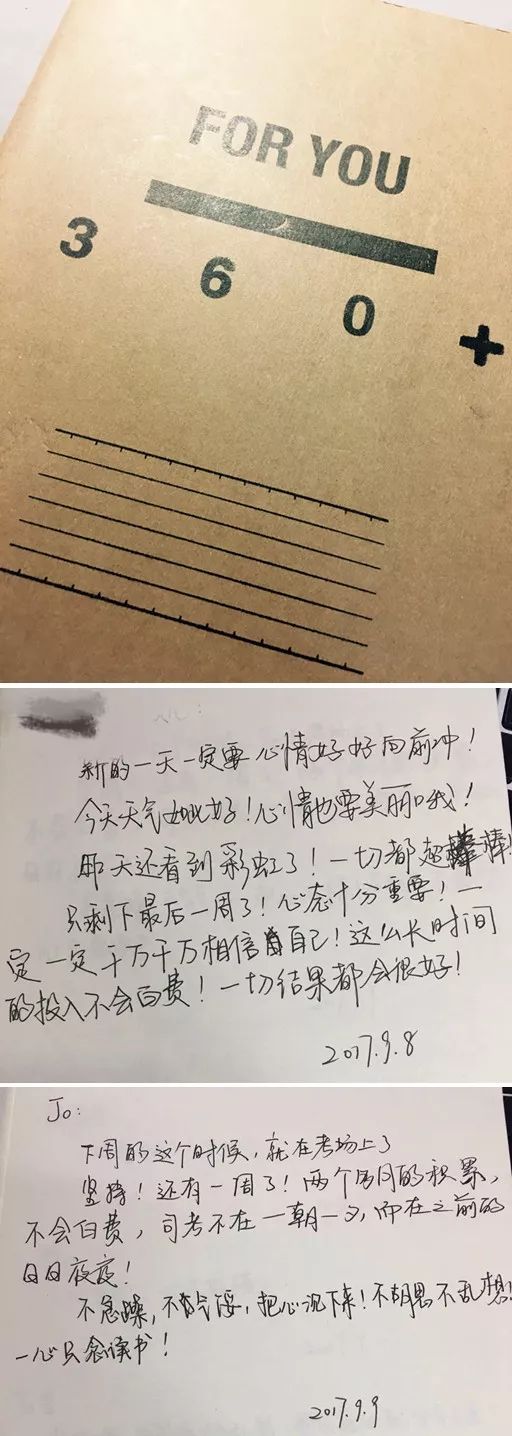 FOR YOU
3 6 0 +
新的一天一定要心情好好向前冲!
今天天气如此好!心情也要美丽哦!
昨天还看到彩虹了!一切都超棒!
只剩下最后一周了!心态十分重要!一
定一定千万千万相信自己!这么长时间
的投入不会白费!一切结果都会很好!
2017.9.8
Jo:
下周的这个时候,就在考场上了
坚持!还有一周了!两个多月的积累,
不会白费,司考不在一朝一夕,而在之前的
日日夜夜!
不急躁,不气馁,把心沉下来!不胡思不乱想!
一心只念读书!
2017.9.9